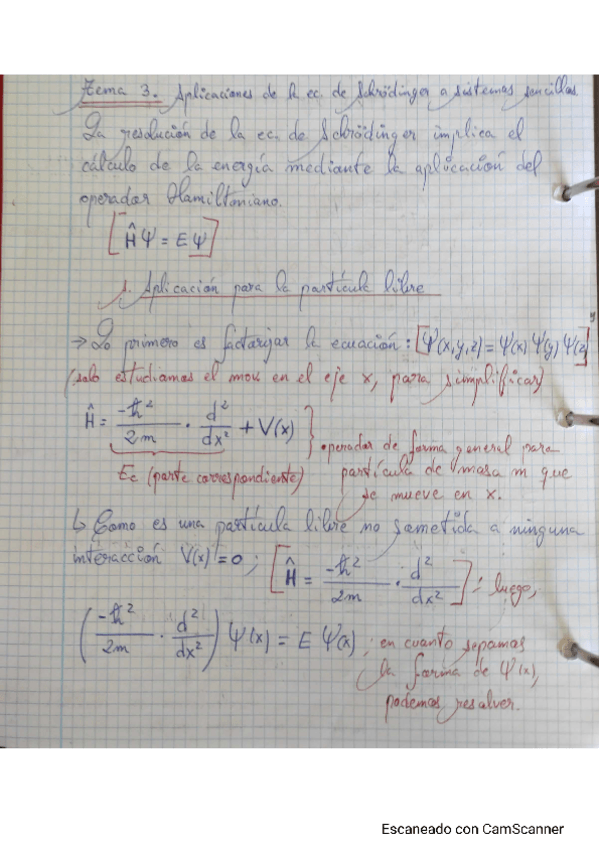 Tema 3. Aplicaciones de la ec. de Schrödinger a sistemas sencillos
La resolución de la ec. de Schrödinger implica el
cálculo de la energía mediante la aplicación del
operador Hamiltoniano.
[Ĥψ = Eψ]
1. Aplicación para la partícula libre
→ Lo primero es factorizar la ecuación: [Ψ(x,y,z) = Ψ(x) Ψ(y) Ψ(z)]
(solo estudiamos el mov. en el eje x, para simplificar)
Ĥ = -ħ²/2m · d²/dx² + V(x) } operador de forma general para
Ec (parte correspondiente) partícula de masa m que
se mueve en x.
↳ Como es una partícula libre no sometida a ninguna
interacción V(x) = 0 ; [Ĥ = -ħ²/2m · d²/dx²] : luego,
(-ħ²/2m · d²/dx²) Ψ(x) = E Ψ(x) ; en cuanto sepamos
la forma de Ψ(x),
podemos resolver.
Escaneado con CamScanner